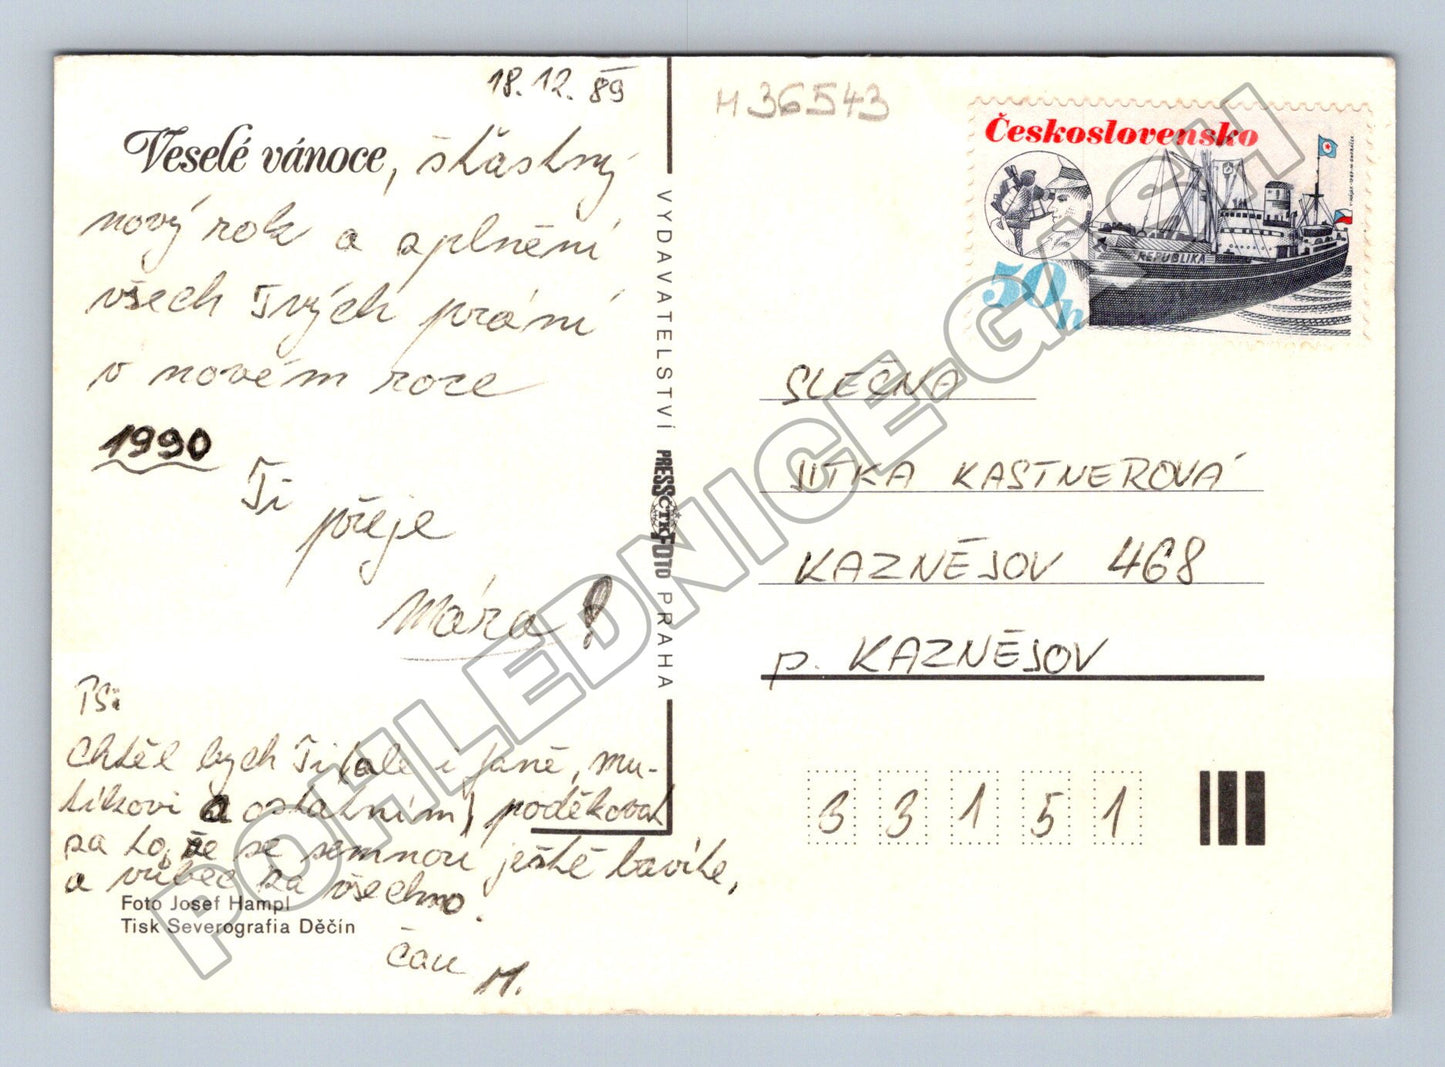 18.12.89
Veselé vánoce, šťastný
nový rok a splnění
všech Tvých přání
v novém roce
1990
Ti
přeje
Mára
PS:
Chtěl bych Ti (ale i Janě, Mu-
tikovi a ostatním) poděkovat
za to, že se semnou ještě bavíte,
a vůbec za všechno.
Čau
M.
Foto Josef Hampl
Tisk Severografia Děčín
VYDAVATELSTVÍ PRESSFOTO PRAHA
ČTK
M36543
Československo
REPUBLIKA
50h
SLEČNA
JITKA KASTNEROVÁ
KAZNĚJOV 468
p. KAZNĚJOV
33151
POHLEDNICE-CASH